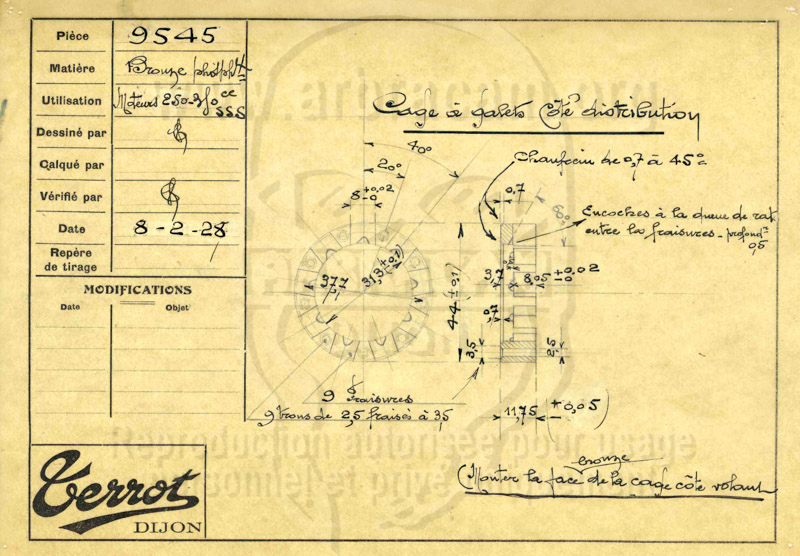 Pièce 9545
Matière Bronze phosph
Utilisation Moteurs 250-350 cc
SSS
Dessiné par
Calqué par
Vérifié par
Date 8-2-28
Repère
de tirage
MODIFICATIONS
Date Objet
www.arbracam.org
Cage à galets Côté distribution
Chanfrein de 0,7 à 45°
Encoches à la queue de rat
entre les fraisures - profondr
0,5
40°
20°
8 +0,02
-0
37,7
31,3 (±0,1)
0,7
60°
44 (±0,1)
3,7
8,05 +0,02
-0
0,7
3,5
2,5
11,75 (±0,05)
9 fraisures
9 trous de 2,5 fraisés à 3,5
Reproduction autorisée pour usage
personnel et privé
bronze
(Monter la face de la cage côté volant
Terrot
DIJON